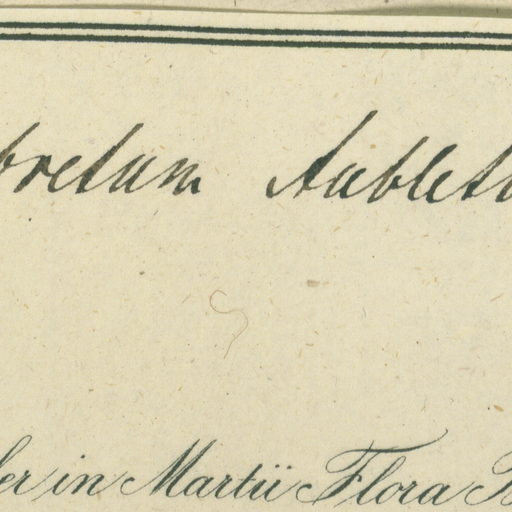 bretum Aubleti
ler in Martii Flora B